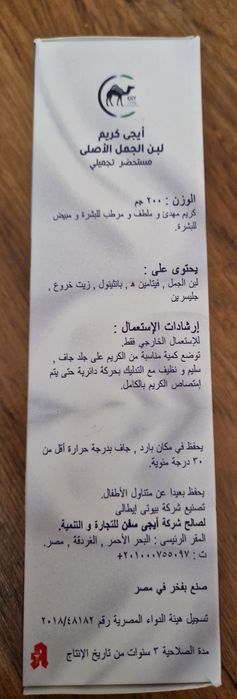 EGY
أيجى كريم
لبن الجمل الأصلى
مستحضر تجميلي
الوزن : ٢٠٠ جم
كريم مهدئ و ملطف و مرطب للبشرة و مبيض
للبشرة.
يحتوى على :
لبن الجمل , فيتامين ه , بانثينول , زيت خروع ,
جليسرين
إرشادات الإستعمال :
للإستعمال الخارجي فقط.
توضع كمية مناسبة من الكريم على جلد جاف ,
سليم و نظيف مع التدليك بحركة دائرية حتى يتم
إمتصاص الكريم بالكامل.
يحفظ في مكان بارد , جاف بدرجة حرارة أقل من
٣٠ درجة مئوية.
يحفظ بعيدا عن متناول الأطفال.
تصنيع شركة بيوتى إيطالى
لصالح شركة أيجى سفن للتجارة و التنمية.
المقر الرئيسى : البحر الأحمر , الغردقة , مصر.
ت : ٢٠١٠٠٠٧٥٥٠٩٧+
صنع بفخر في مصر
تسجيل هيئة الدواء المصرية رقم ٢٠١٨/٤٨١٨٢
مدة الصلاحية ٣ سنوات من تاريخ الإنتاج